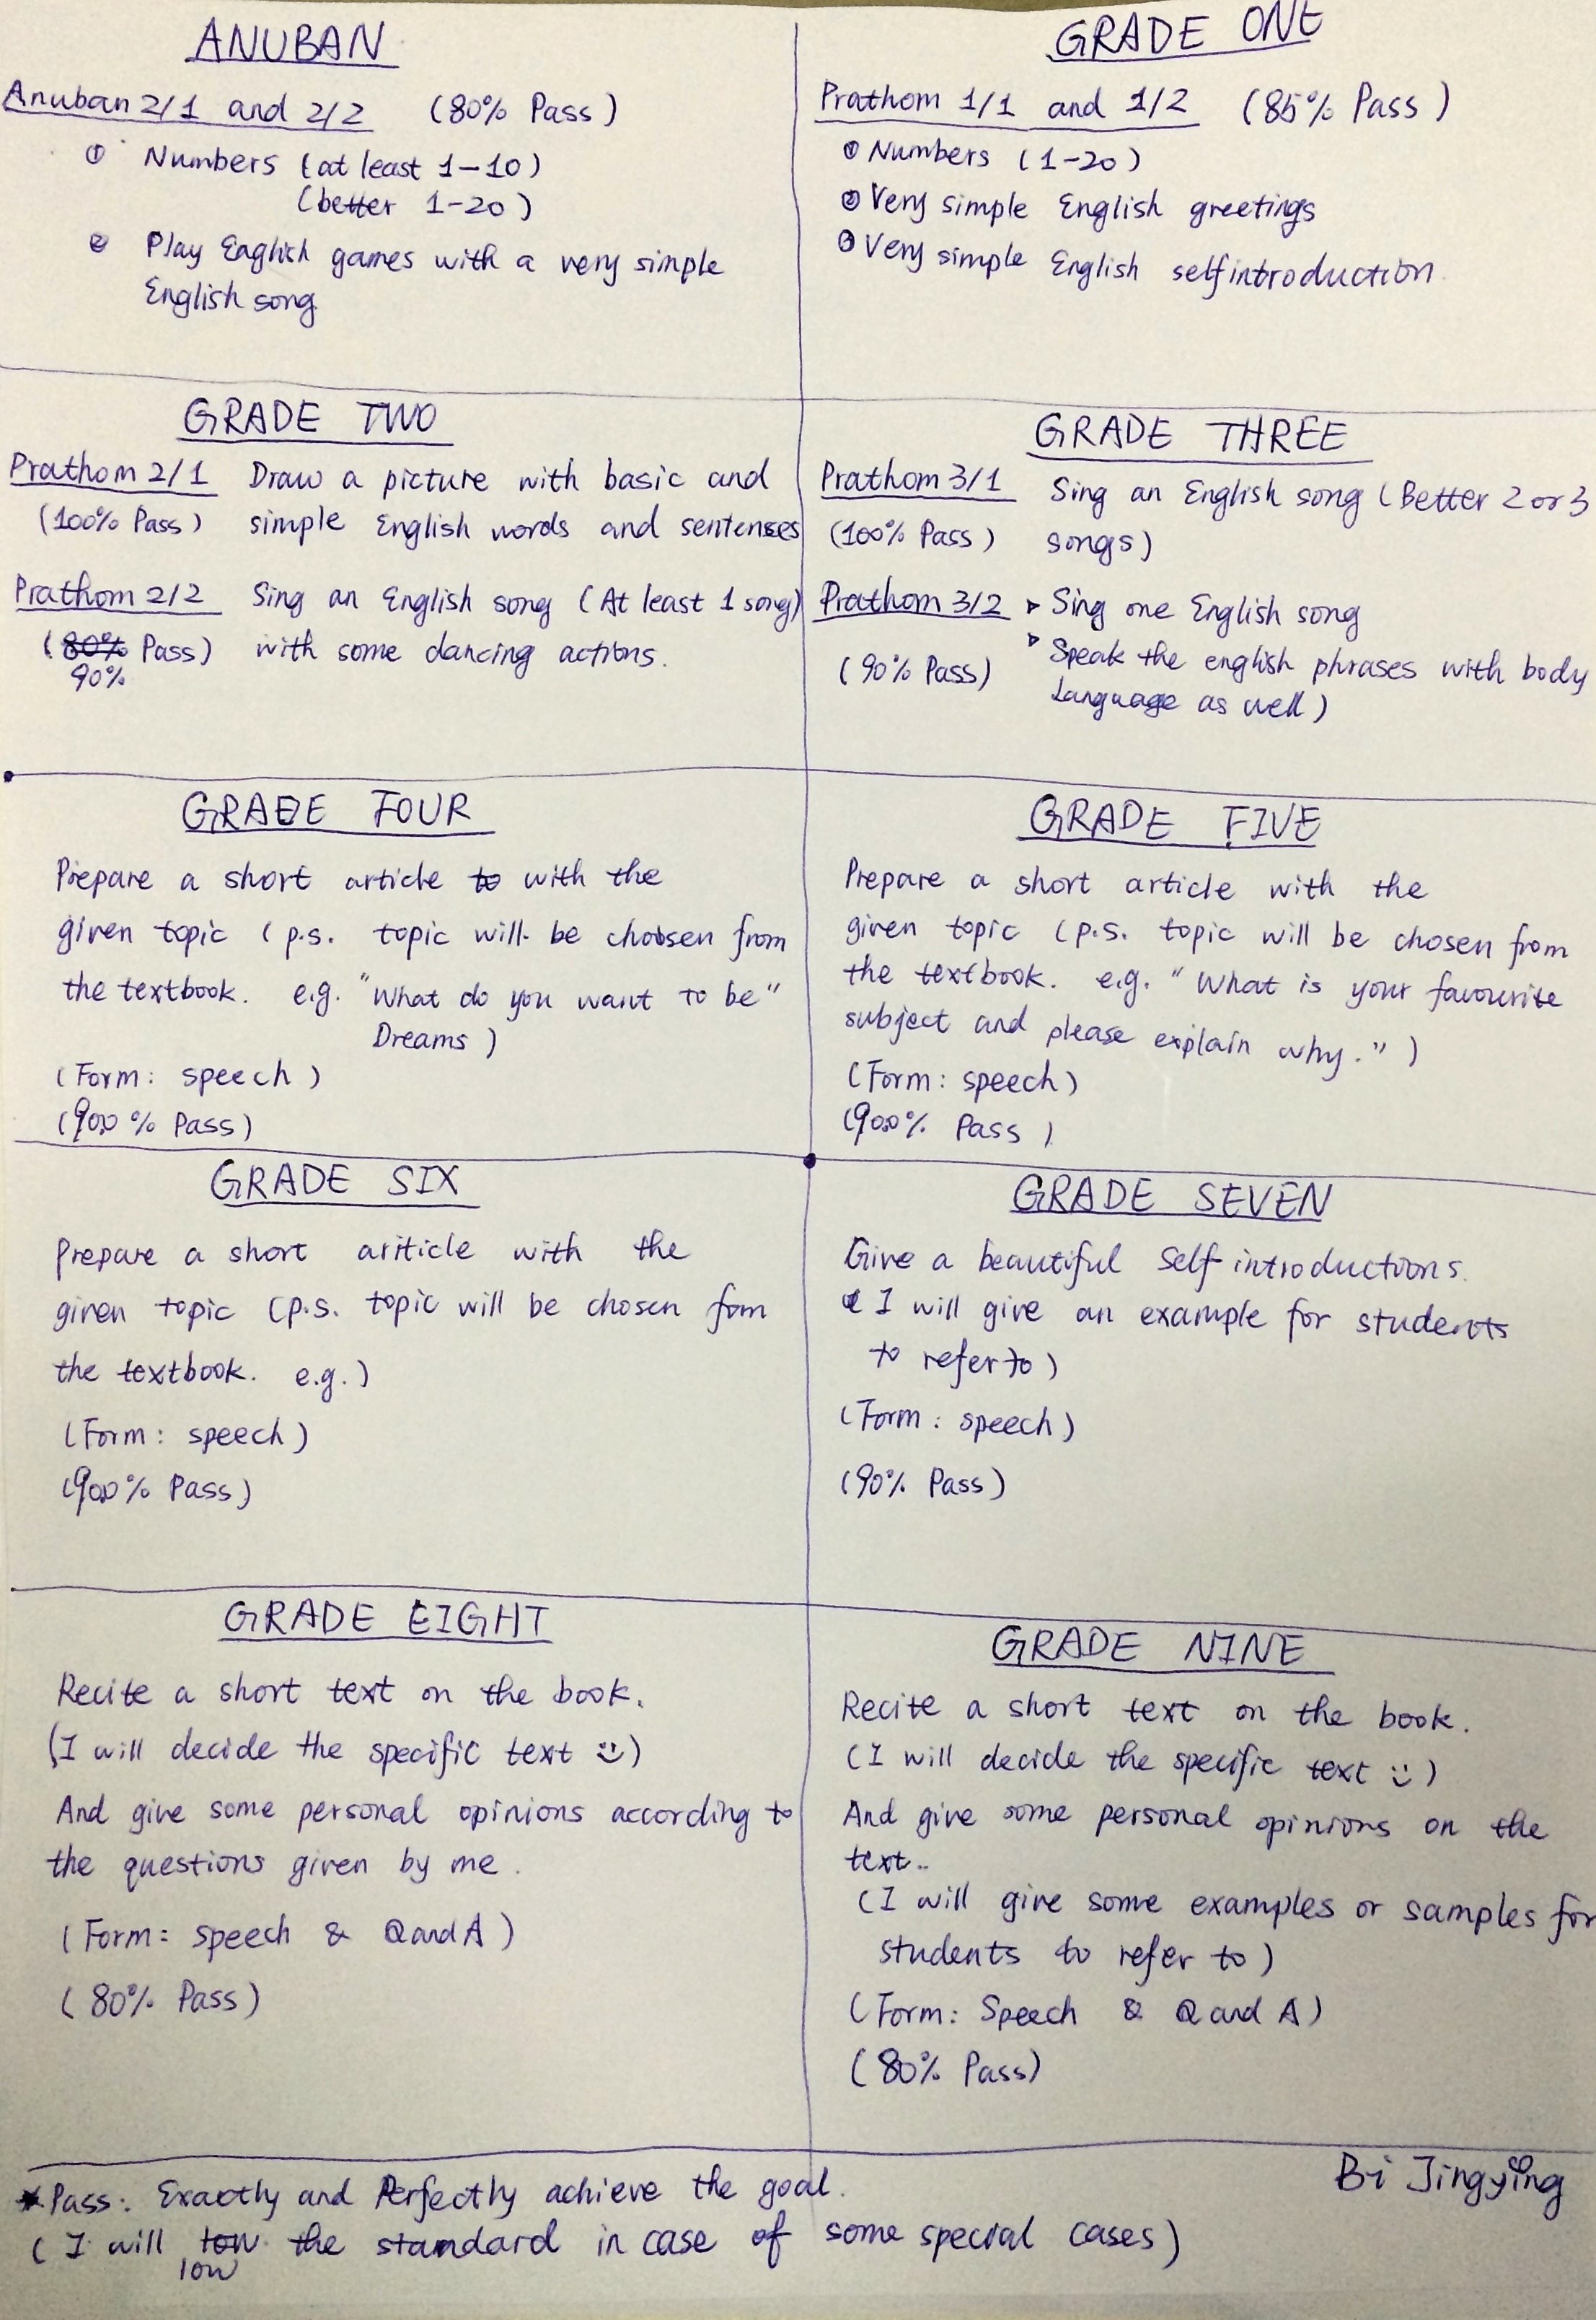 ANUBAN
Anuban 2/1 and 2/2 (80% Pass)
① Numbers (at least 1-10)
(better 1-20)
② Play English games with a very simple
English song
GRADE ONE
Prathom 1/1 and 1/2 (85% Pass)
① Numbers (1-20)
② Very simple English greetings
③ Very simple English selfintroduction.
GRADE TWO
Prathom 2/1 Draw a picture with basic and
(100% Pass) simple English words and sentenses
Prathom 2/2 Sing an English song (At least 1 song)
(80% Pass) with some dancing actions.
90%
GRADE THREE
Prathom 3/1 Sing an English song (Better 2 or 3
(100% Pass) songs)
Prathom 3/2 ▹ Sing one English song
▹ Speak the english phrases with body
(90% Pass) Language as well)
GRADE FOUR
Prepare a short article to with the
given topic (p.s. topic will be choosen from
the textbook. e.g. "What do you want to be"
Dreams)
(Form: speech)
(90% Pass)
GRADE FIVE
Prepare a short article with the
given topic (p.s. topic will be chosen from
the textbook. e.g. "What is your favourite
subject and please explain why.")
(Form: speech)
(90% Pass)
GRADE SIX
Prepare a short ariticle with the
given topic (p.s. topic will be chosen fom
the textbook. e.g.)
(Form: speech)
(90% Pass)
GRADE SEVEN
Give a beautiful self introductions.
(I will give an example for students
to refer to)
(Form: speech)
(90% Pass)
GRADE EIGHT
Recite a short text on the book.
(I will decide the specific text :))
And give some personal opinions according to
the questions given by me.
(Form: speech & Q and A)
(80% Pass)
GRADE NINE
Recite a short text on the book.
(I will decide the specific text :))
And give some personal opinions on the
text..
(I will give some examples or samples for
students to refer to)
(Form: Speech & Q and A)
(80% Pass)
*Pass: Exactly and Perfectly achieve the goal.
(I will low the standard in case of some special cases)
low
Bi Jingying